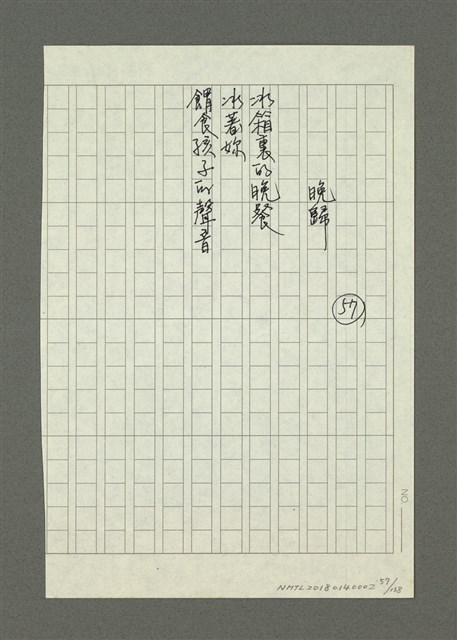 57
晚歸
冰箱裏的晚餐
冰著妳
餵食孩子的聲音
NO.
NMTL20180140002 57/138